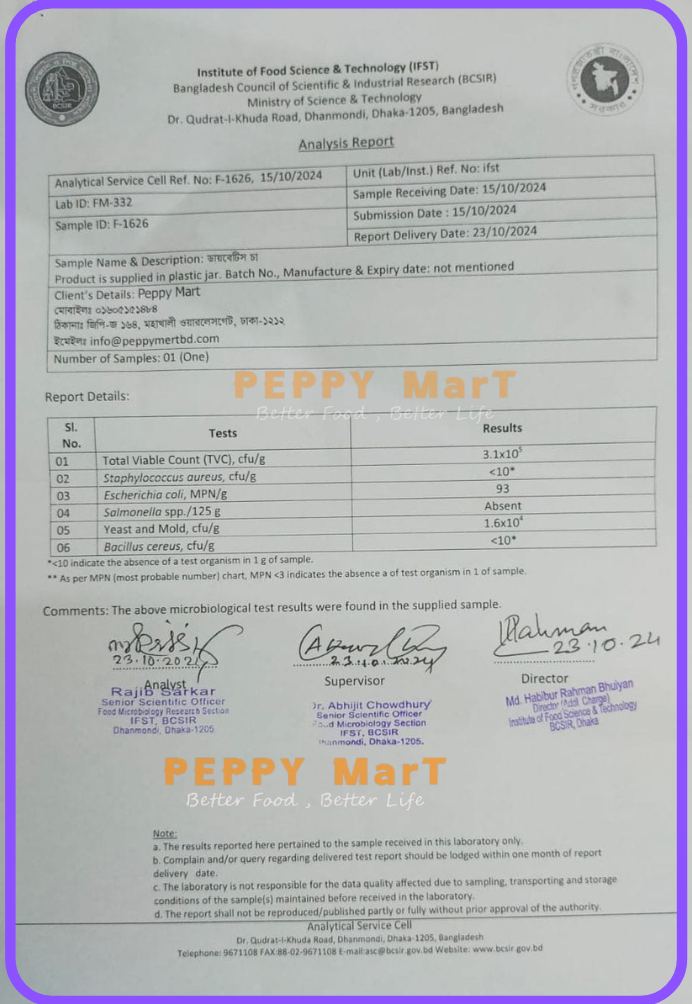 Institute of Food Science & Technology (IFST)
Bangladesh Council of Scientific & Industrial Research (BCSIR)
Ministry of Science & Technology
Dr. Qudrat-I-Khuda Road, Dhanmondi, Dhaka-1205, Bangladesh
BCSIR
Analysis Report
Analytical Service Cell Ref. No: F-1626, 15/10/2024
Unit (Lab/Inst.) Ref. No: ifst
Lab ID: FM-332
Sample Receiving Date: 15/10/2024
Sample ID: F-1626
Submission Date : 15/10/2024
Report Delivery Date: 23/10/2024
Sample Name & Description: ডায়বেটিস চা
Product is supplied in plastic jar. Batch No., Manufacture & Expiry date: not mentioned
Client's Details: Peppy Mart
মোবাইলঃ ০১৬০৫১৫১৪৮৪
ঠিকানাঃ জিপি-জ ১৬৪, মহাখালী ওয়ারলেসগেট, ঢাকা-১২১২
ইমেইলঃ info@peppymertbd.com
Number of Samples: 01 (One)
PEPPY MarT
Better Food , Better Life
Report Details:
Sl. No. Tests Results
01 Total Viable Count (TVC), cfu/g 3.1x10⁵
02 Staphylococcus aureus, cfu/g <10*
03 Escherichia coli, MPN/g 93
04 Salmonella spp./125 g Absent
05 Yeast and Mold, cfu/g 1.6x10⁴
06 Bacillus cereus, cfu/g <10*
*<10 indicate the absence of a test organism in 1 g of sample.
** As per MPN (most probable number) chart, MPN <3 indicates the absence a of test organism in 1 of sample.
Comments: The above microbiological test results were found in the supplied sample.
23.10.2024
23.10.2024
Rahman
23.10.24
Analyst
Rajib Sarkar
Senior Scientific Officer
Food Microbiology Research Section
IFST, BCSIR
Dhanmondi, Dhaka-1205
Supervisor
Dr. Abhijit Chowdhury
Senior Scientific Officer
Food Microbiology Section
IFST, BCSIR
Dhanmondi, Dhaka-1205.
Director
Md. Habibur Rahman Bhuiyan
Director (Addl. Charge)
Institute of Food Science & Technology
BCSIR, Dhaka
PEPPY MarT
Better Food , Better Life
Note:
a. The results reported here pertained to the sample received in this laboratory only.
b. Complain and/or query regarding delivered test report should be lodged within one month of report
delivery date.
c. The laboratory is not responsible for the data quality affected due to sampling, transporting and storage
conditions of the sample(s) maintained before received in the laboratory.
d. The report shall not be reproduced/published partly or fully without prior approval of the authority.
Analytical Service Cell
Dr. Qudrat-I-Khuda Road, Dhanmondi, Dhaka-1205, Bangladesh
Telephone: 9671108 FAX:88-02-9671108 E-mail:asc@bcsir.gov.bd Website: www.bcsir.gov.bd